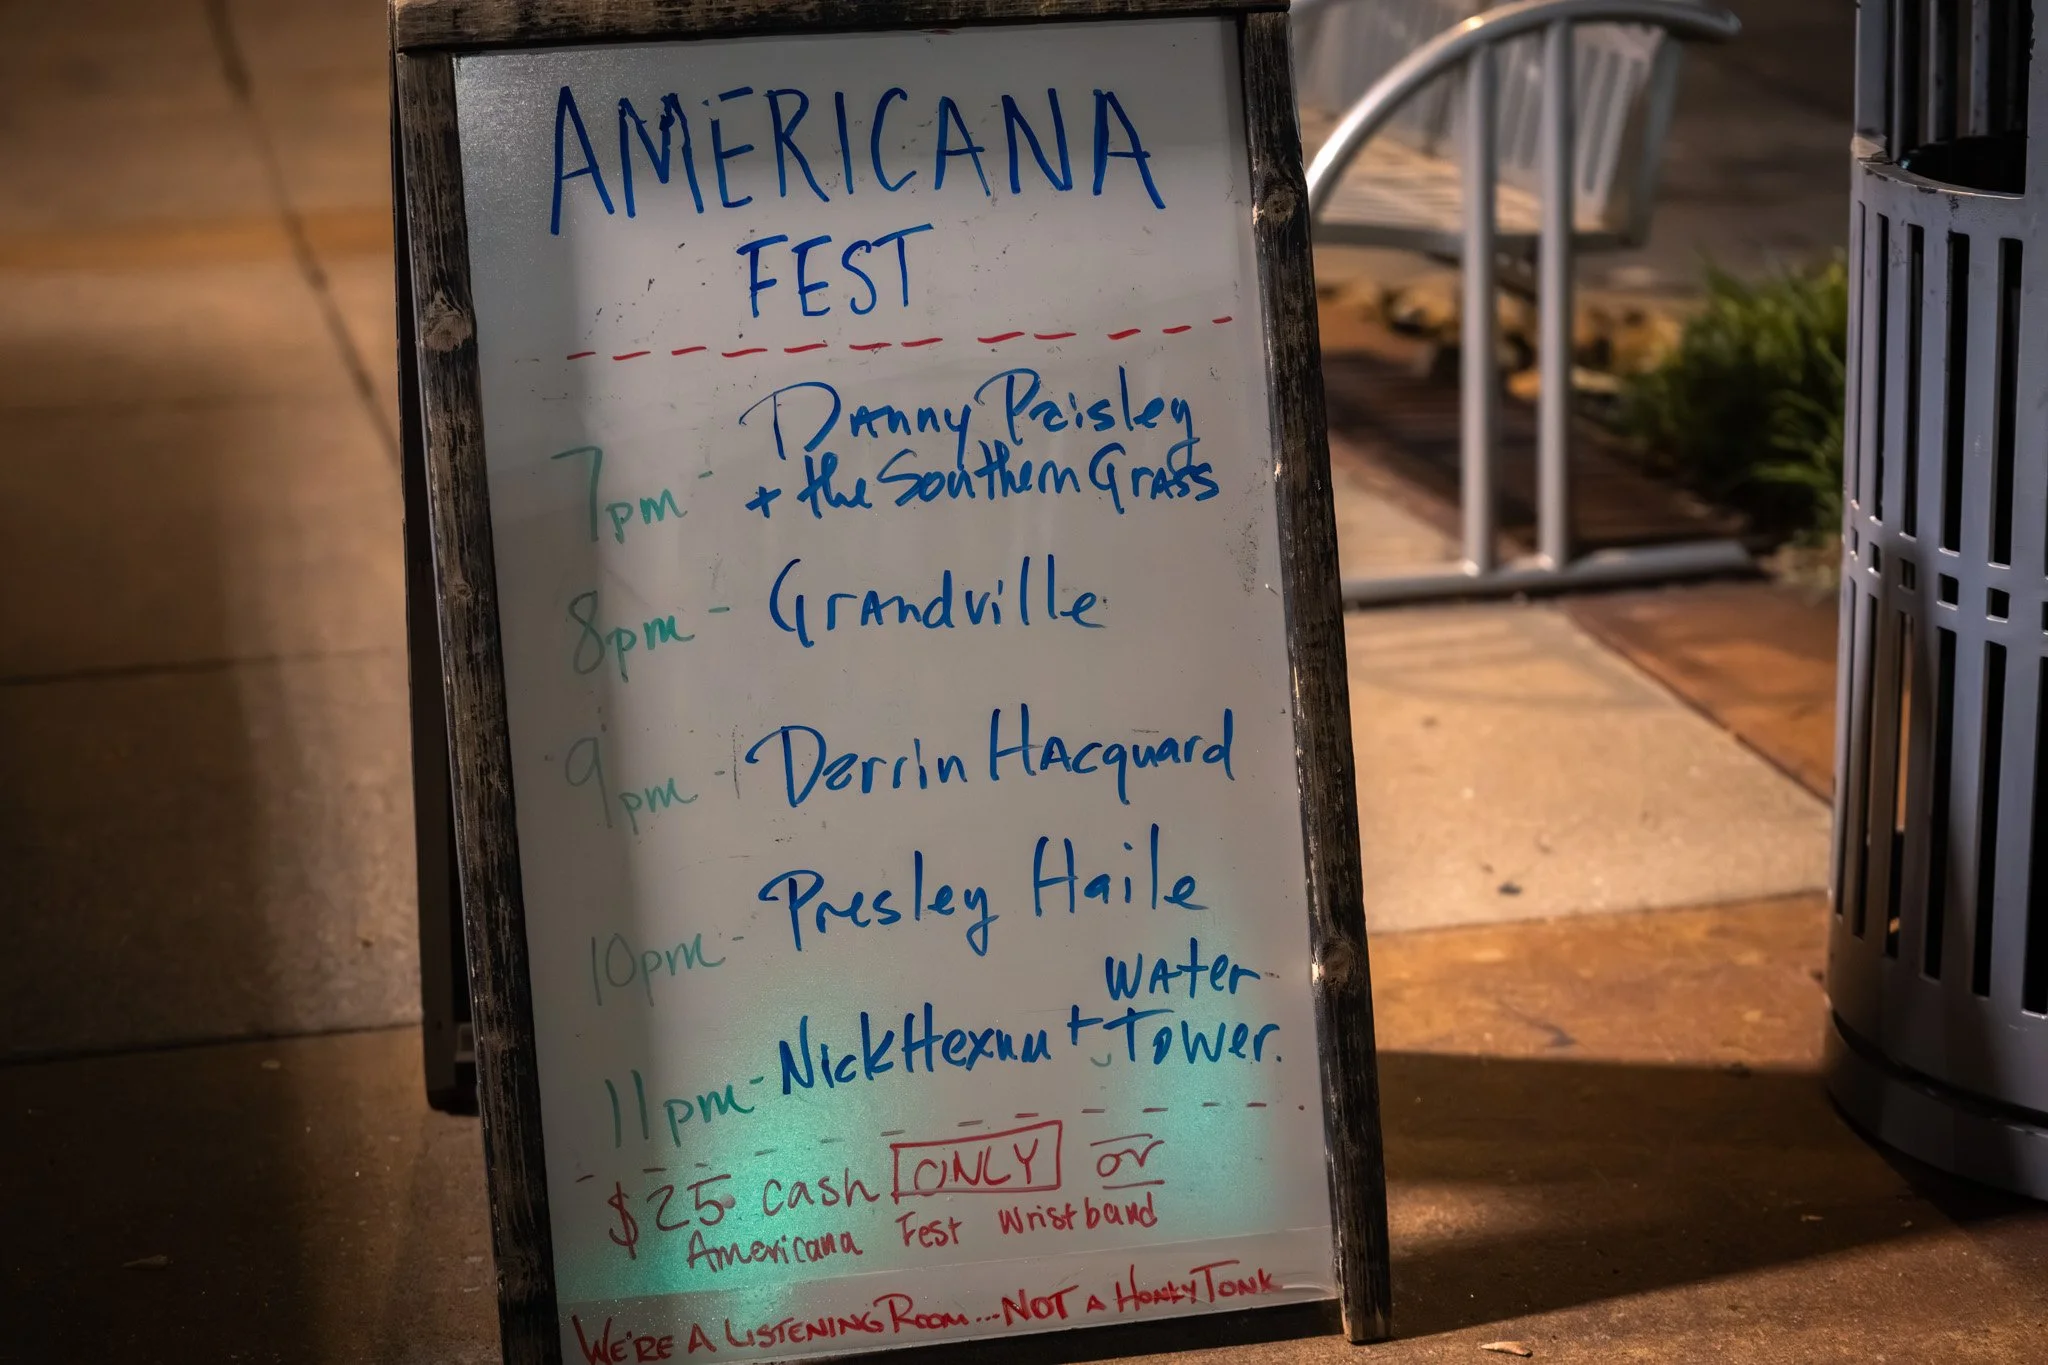 AMERICANA
FEST
7pm - Danny Paisley
+ the Southern Grass
8pm - Grandville
9pm - Darrin Hacquard
10pm - Presley Haile
11pm - Nick Hexum + Water
Tower.
$25 cash ONLY or
Americana Fest Wristband
WE'RE A LISTENING ROOM...NOT A HONKY TONK